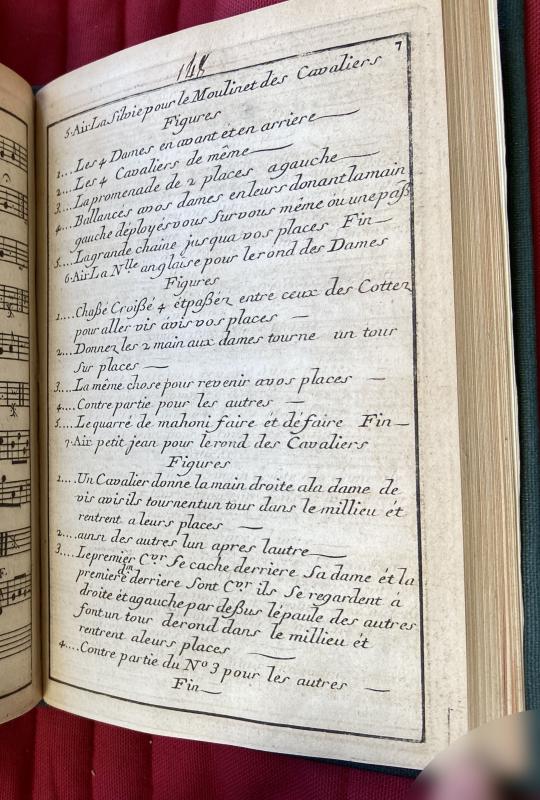 148
7
5. Air La Silvie pour le Moulinet des Cavaliers
Figures
1... Les 4 Dames en avant et en arriere
2... Les 4 Cavaliers de même
3.... La promenade de 2 places a gauche
4.... Ballances avos dames en leurs donant la main
gauche déployés vous sur vous même ou une paß
5.... La grande chaine jusqua vos places Fin
6. Air La Nlle anglaise pour le rond des Dames
Figures
1.... Chaßé Croißé 4 et paßéz entre ceux des Cottez
pour aller vis avis vos places
2... Donnez les 2 main aux dames tourne un tour
Sur places
3.... La même chose pour revenir avos places
4.... Contre partie pour les autres
5.... Le quarré de mahoni faire ét défaire Fin
7. Air petit jean pour le rond des Cavaliers
Figures
1.... Un Cavalier donne la main droite ala dame de
vis avis ils tournent un tour dans le millieu ét
rentrent a leurs places
2.... ainsi des autres lun apres lautre
3.... Le premier Cer Se cache derriere Sa dame ét la
premiere dm derriere Sont Cer ils Se regardent á
droite et agauche par deßus lépaule des autres
font un tour de rond dans le millieu ét
rentrent aleurs places
4.... Contre partie du No 3 pour les autres
Fin